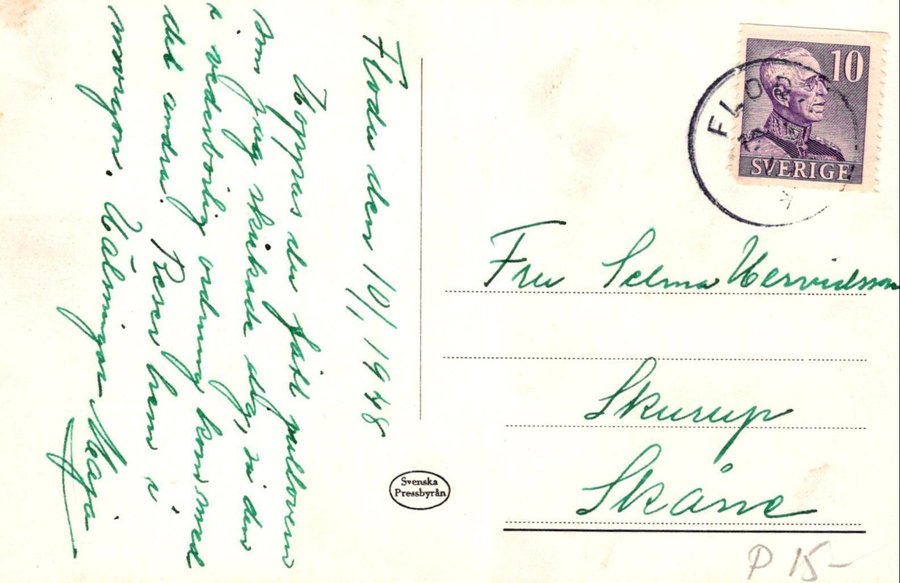 Floda den 10/1 1948
Hoppas du fått pullovern
som jag skickade dig, den
i vederbörlig ordning kom med
det andra. Reser hem i
morgon. Hälsningar Maja
10
SVERIGE
FLODA
Fru Selma Hervidsson
Skurup
Skåne
Svenska
Pressbyrån
P 15-